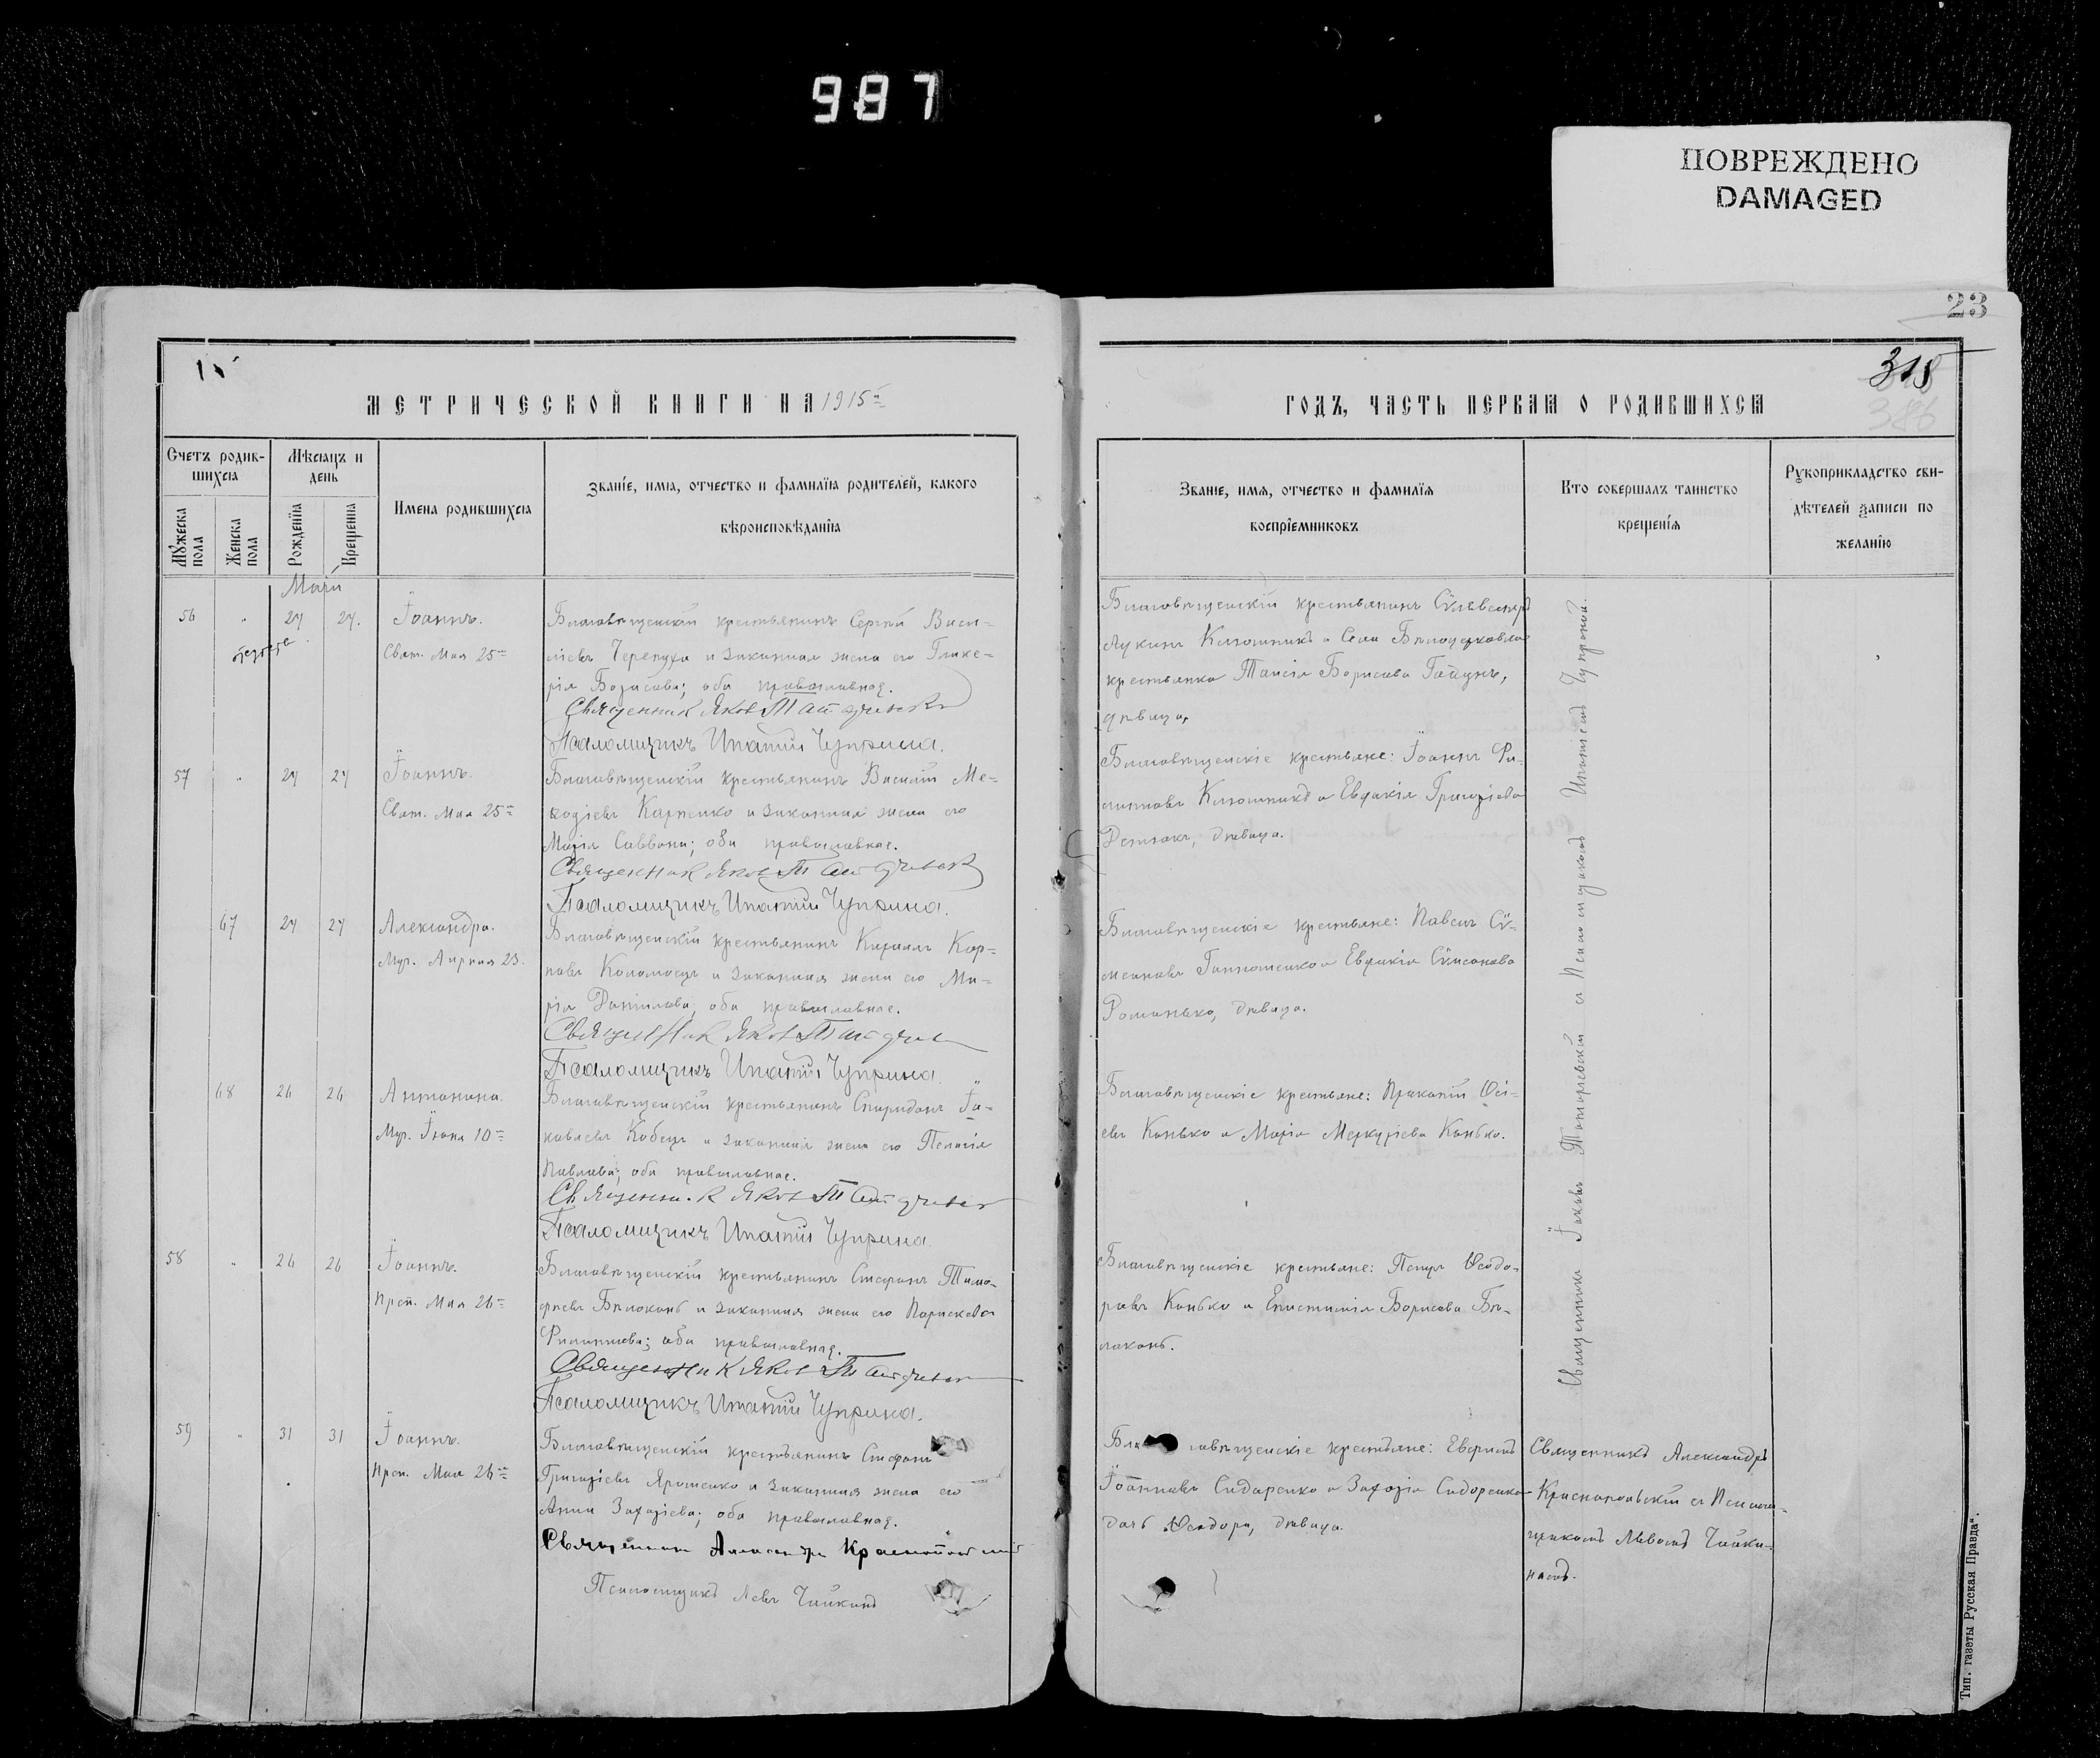 987
ПОВРЕЖДЕНО
DAMAGED
23
318
386
15
МЕТРИЧЕСКОЙ КНИГИ НА 1915й
ГОДЪ, ЧАСТЬ ПЕРВАЯ О РОДИВШИХСЯ
Счетъ родив-
шихся
Мѣсяцъ и
день
Имена родившихся
Званіе, имя, отчество и фамилія родителей, какого
вѣроисповѣданія
Мужеска
пола
Женска
пола
Рожденія
Крещенія
Званіе, имя, отчество и фамилія
воспріемниковъ
Кто совершалъ таинство
крещенія
Рукоприкладство сви-
дѣтелей записи по
желанію
Маій
56 " 24 24. Іоаннъ.
Свят. Мая 25го
Благовѣщенскій крестьянинъ Сергій Васи-
ліевъ Черепуха и законная жена его Глике-
рія Борисова; оба православные.
Священникъ Яковъ
Псаломщикъ Ипатій Чуприна.
Благовѣщенскій крестьянинъ Сѵльвестръ
Лукинъ Ключникъ и Села Бѣлоцерковки
крестьянка Таисія Борисова Гайдукъ,
дѣвица.
57 " 24 24 Іоаннъ.
Свят. Мая 25го
Благовѣщенскій крестьянинъ Василій Ме-
ѳодіевъ Карпенко и законная жена его
Марія Саввина; оба православные.
Священникъ Яковъ
Псаломщикъ Ипатій Чуприна.
Благовѣщенскіе крестьяне: Іоаннъ Фи-
липповъ Ключникъ и Евдокія Григоріева
дѣвица.
67 24 24 Александра.
Муч. Апрѣля 23.
Благовѣщенскій крестьянинъ Кириллъ Кар-
повъ Коломоецъ и законная жена его Ма-
рія Данилова; оба православные.
Священникъ Яковъ
Псаломщикъ Ипатій Чуприна.
Благовѣщенскіе крестьяне: Павелъ Сѵ-
меоновъ и Евдокія Сѵмеонова
Романько, дѣвица.
68 26 26 Антонина.
Муч. Іюня 10го
Благовѣщенскій крестьянинъ Спиридонъ Іа-
ковлевъ Кобецъ и законная жена его Пелагія
Павлова; оба православные.
Священникъ Яковъ
Псаломщикъ Ипатій Чуприна.
Благовѣщенскіе крестьяне: Прокопій Ѳсі-
евъ Конько и Марія Меркуріева Конько.
58 " 26 26 Іоаннъ.
Преп. Мая 26го
Благовѣщенскій крестьянинъ Стефанъ Тимо-
ѳеевъ Бѣлоконь и законная жена его Параскева
Филиппова; оба православные.
Священникъ Яковъ
Псаломщикъ Ипатій Чуприна.
Благовѣщенскіе крестьяне: Петръ Ѳеодо-
ровъ Конько и Епистимія Борисова Бѣ-
локонь.
Священникъ Іаковъ съ Псаломщикомъ Ипатіемъ Чуприной.
59 " 31 31 Іоаннъ.
Преп. Мая 26го
Благовѣщенскій крестьянинъ Стефанъ
Григоріевъ Ярошенко и законная жена его
Анна Захаріева; оба православные.
Священникъ Александръ Краснопольскій
Псаломщикъ Левъ Чайкинъ
Благовѣщенскіе крестьяне: Евфимъ
Іоанновъ Сидоренко и Захарія Сидоренко
дочь Ѳеодора, дѣвица.
Священникъ Александръ
Краснопольскій съ Псалом-
щикомъ Львомъ Чайки-
нымъ.
Тип. газеты Русская Правда".